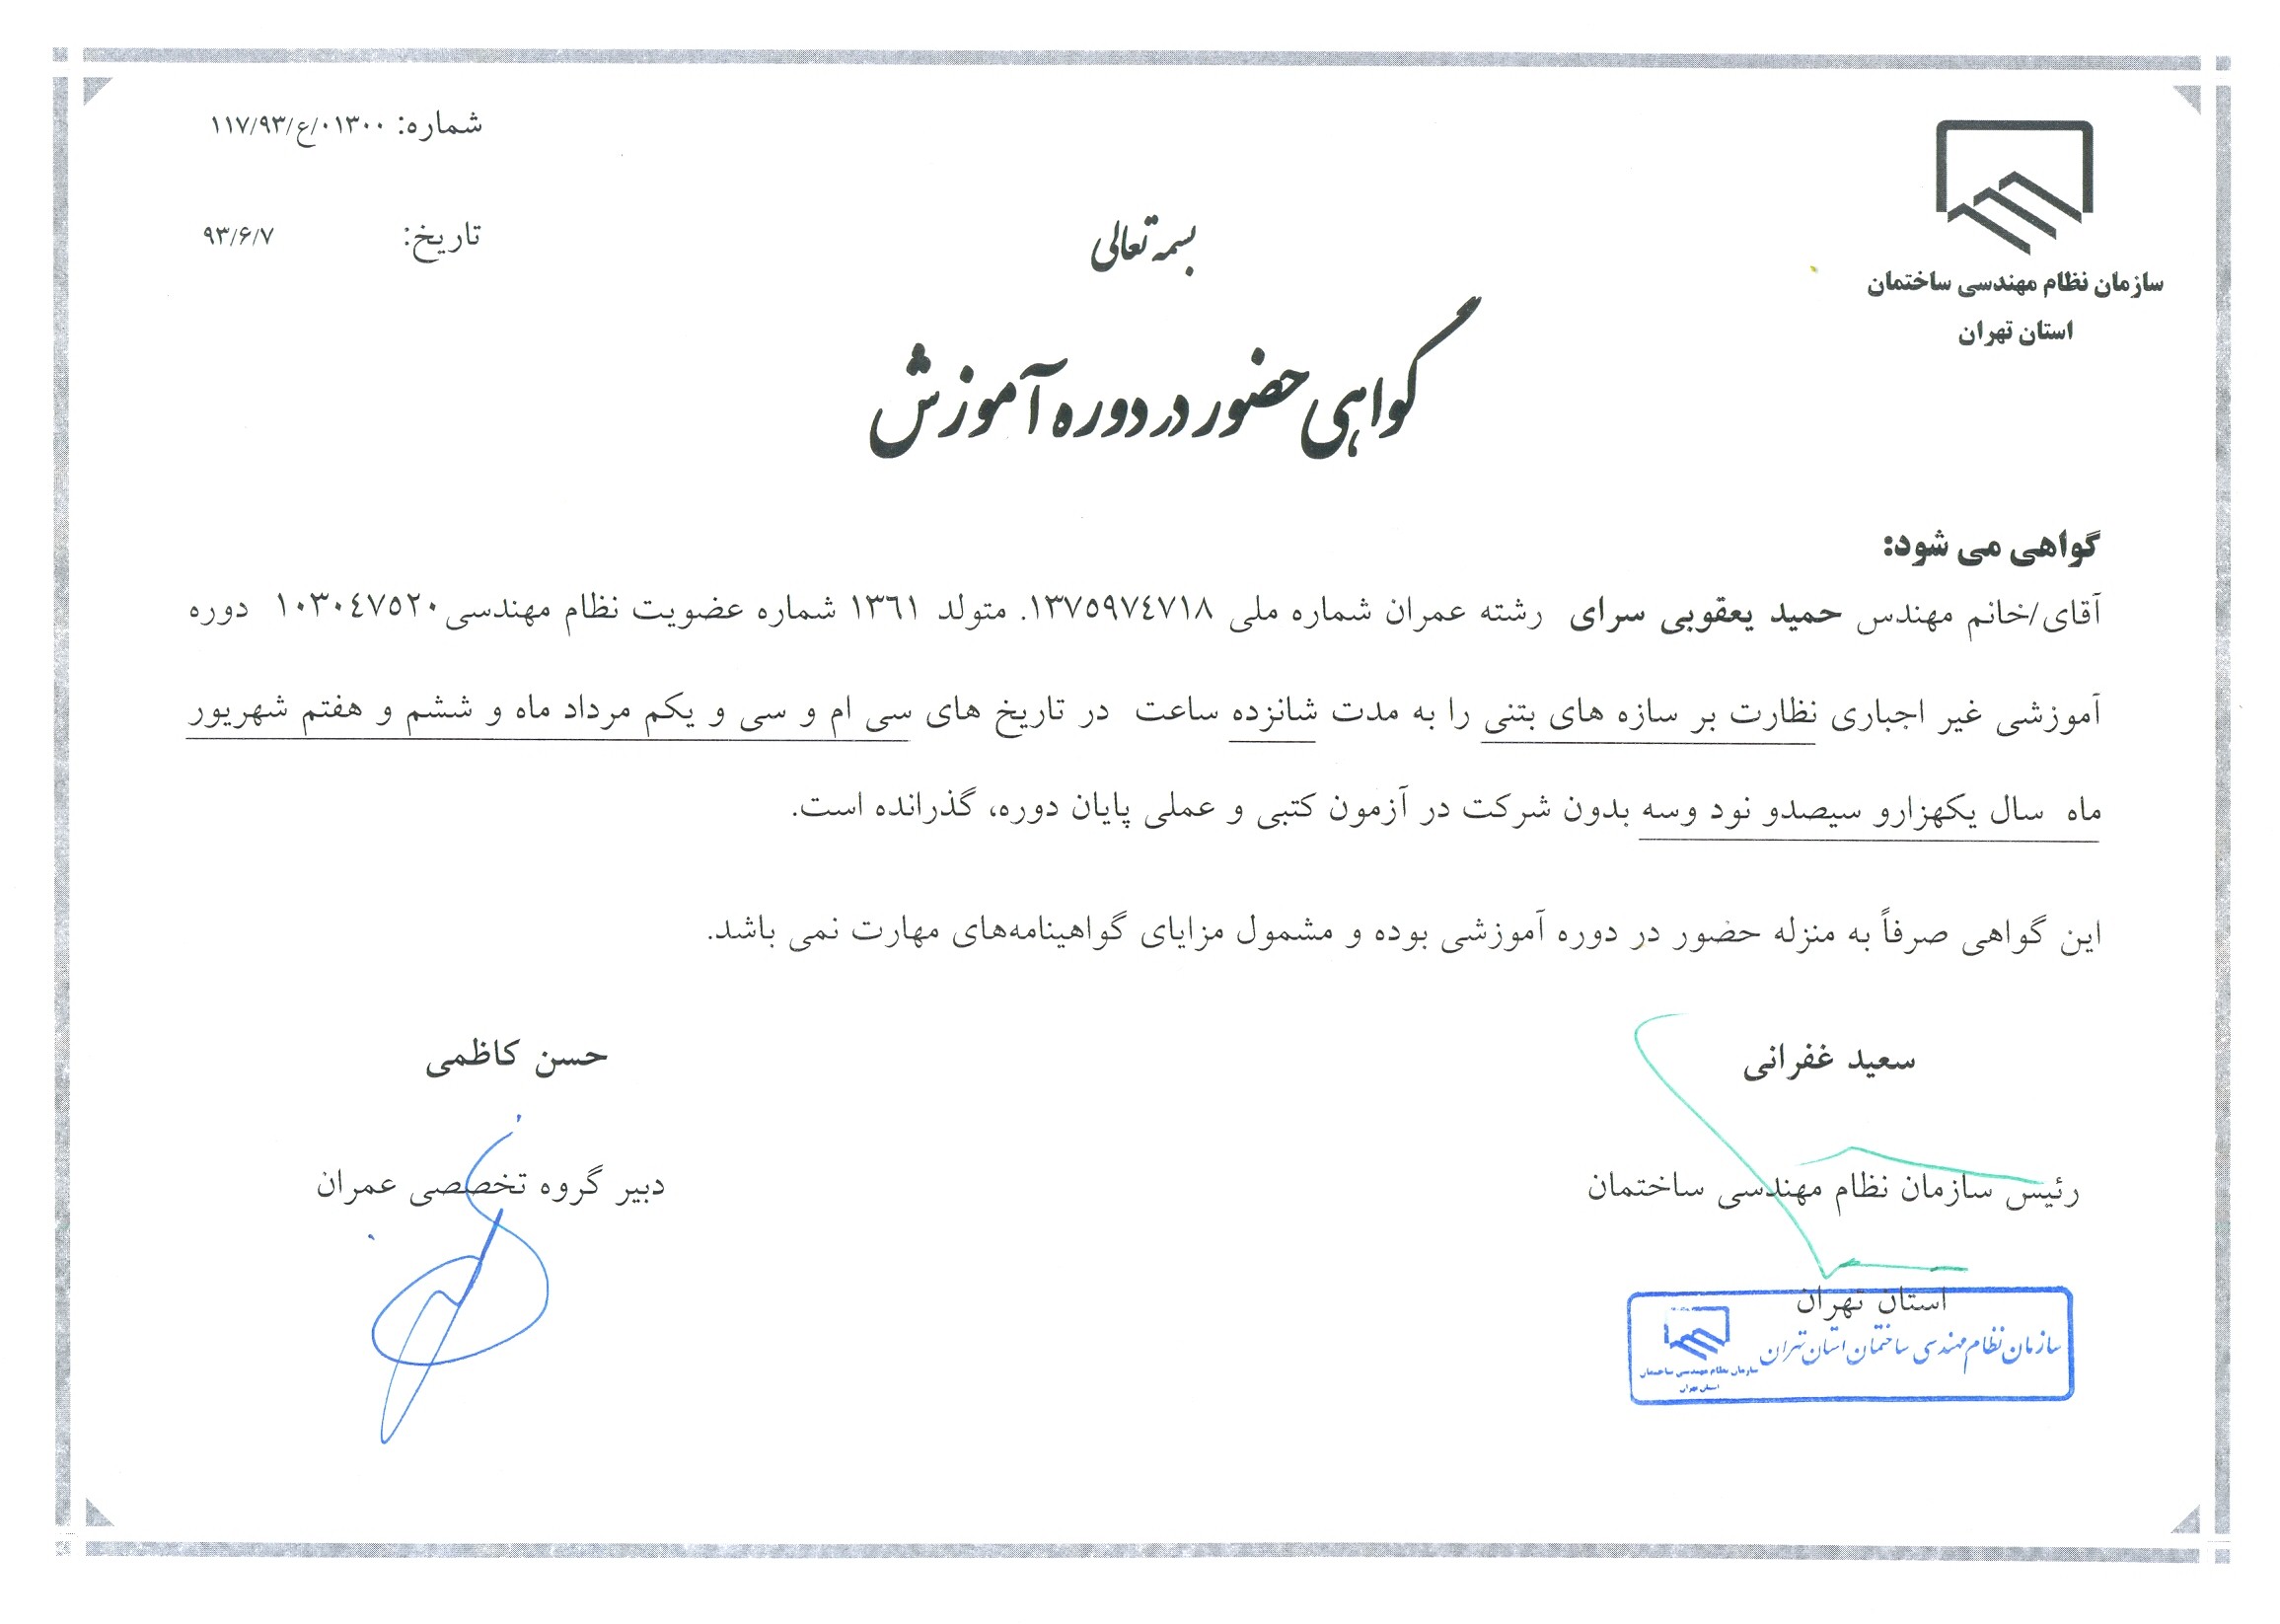 سازمان نظام مهندسی ساختمان
استان تهران
شماره: ۰۱۳۰۰/ع/۱۱۷/۹۳
تاریخ: ۹۳/۶/۷
بسمه تعالی
گواهی حضور در دوره آموزش
گواهی می شود:
آقای/خانم مهندس حمید یعقوبی سرای رشته عمران شماره ملی ۱۳۷۵۹۷٤۷۱۸. متولد ۱۳٦۱ شماره عضویت نظام مهندسی۱۰۳۰٤۷۵۲۰ دوره
آموزشی غیر اجباری نظارت بر سازه های بتنی را به مدت شانزده ساعت در تاریخ های سی ام و سی و یکم مرداد ماه و ششم و هفتم شهریور
ماه سال یکهزارو سیصدو نود وسه بدون شرکت در آزمون کتبی و عملی پایان دوره، گذرانده است.
این گواهی صرفاً به منزله حضور در دوره آموزشی بوده و مشمول مزایای گواهینامه‌های مهارت نمی باشد.
سعید غفرانی
رئیس سازمان نظام مهندسی ساختمان
استان تهران
سازمان نظام مهندسی ساختمان استان تهران
سازمان نظام مهندسی ساختمان
استان تهران
حسن کاظمی
دبیر گروه تخصصی عمران